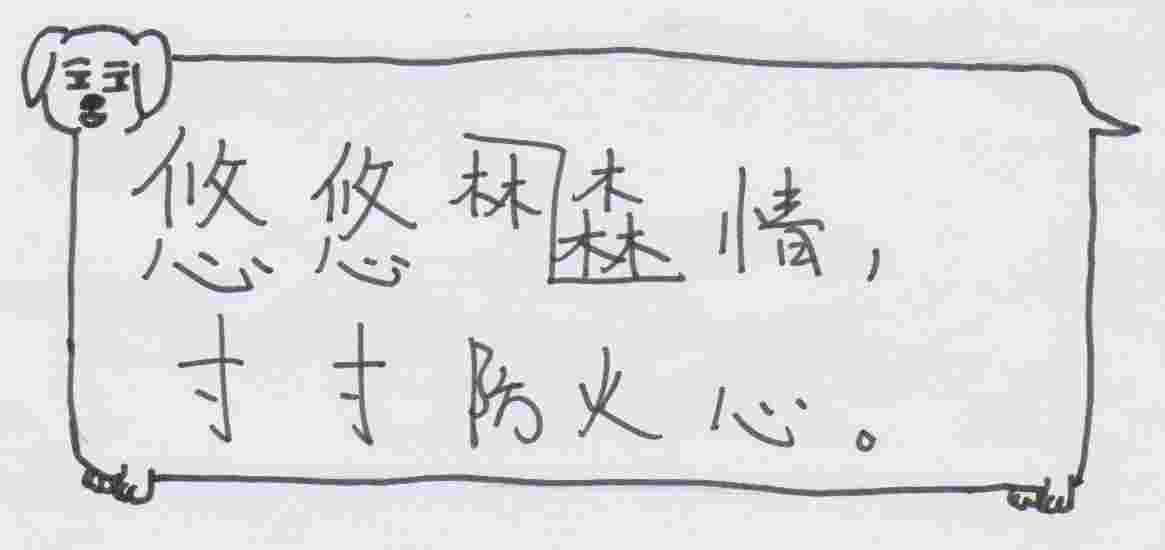 悠悠林森情，
寸寸防火心。